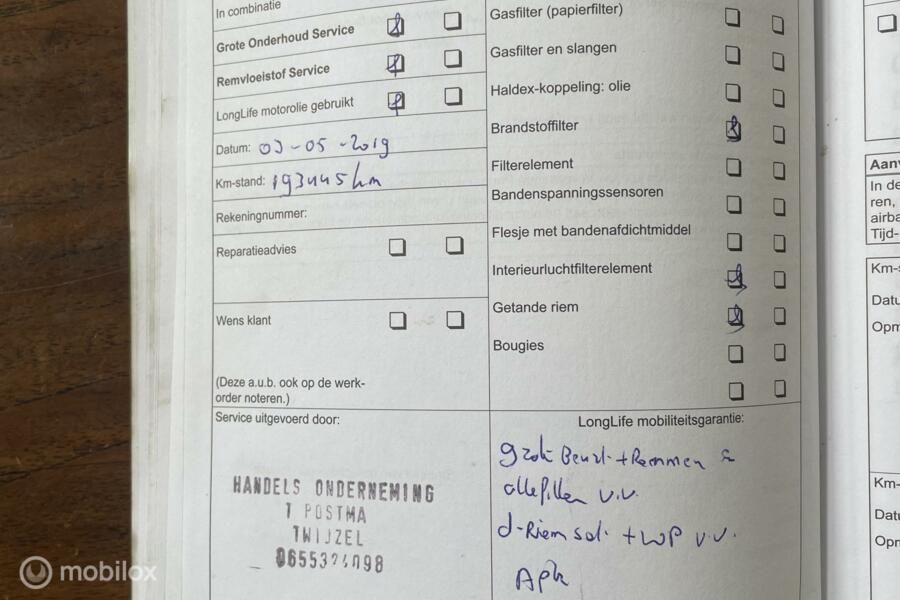 In combinatie
Grote Onderhoud Service
Remvloeistof Service
LongLife motorolie gebruikt
Datum: 03-05-2019
Km-stand: 193445 km
Rekeningnummer:
Reparatieadvies
Wens klant
(Deze a.u.b. ook op de werk-
order noteren.)
Service uitgevoerd door:
HANDELS ONDERNEMING
T POSTMA
TWIJZEL
Gasfilter (papierfilter)
Gasfilter en slangen
Haldex-koppeling: olie
Brandstoffilter
Filterelement
Bandenspanningssensoren
Flesje met bandenafdichtmiddel
Interieurluchtfilterelement
Getande riem
Bougies
LongLife mobiliteitsgarantie:
grote Beurt + Remmen
alle filters v.v.
d-Riem set + WP v.v.
Apk
Aanv
In de
ren,
airba
Tijd-
Km-s
Datu
Opm
Km-
Datu
Opm
mobilox